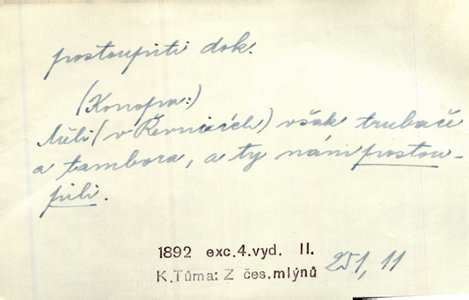 postoupiti dok.
(Konopa:)
Měli (v Řevnicích) však trubače
a tambora, a ty nám postou-
pili.
1892 exc. 4. vyd. II.
K. Tůma: Z čes. mlýnů
251, 11